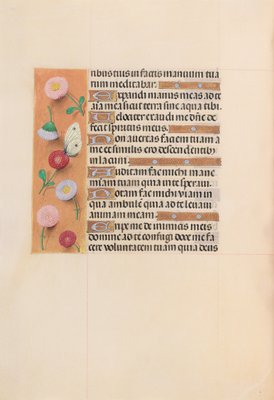 ribus tuis in factis manuum tua
rum meditabar.
Expandi manus meas ad te
aīa mea sicut terra sine aqua tibi.
Velociter exaudi me dñe de
fecit spiritus meus.
Non avertas faciem tuam a
me et similis ero descendentibȝ
in lacum.
Auditam fac michi mane
miam tuam quia in te speravi.
Notam fac michi viam in
qua ambulē quia ad te levavi
animam meam.
Eripe me de inimicis meis
domine ad te confugi doce me fa
cere voluntatem tuam quia deus